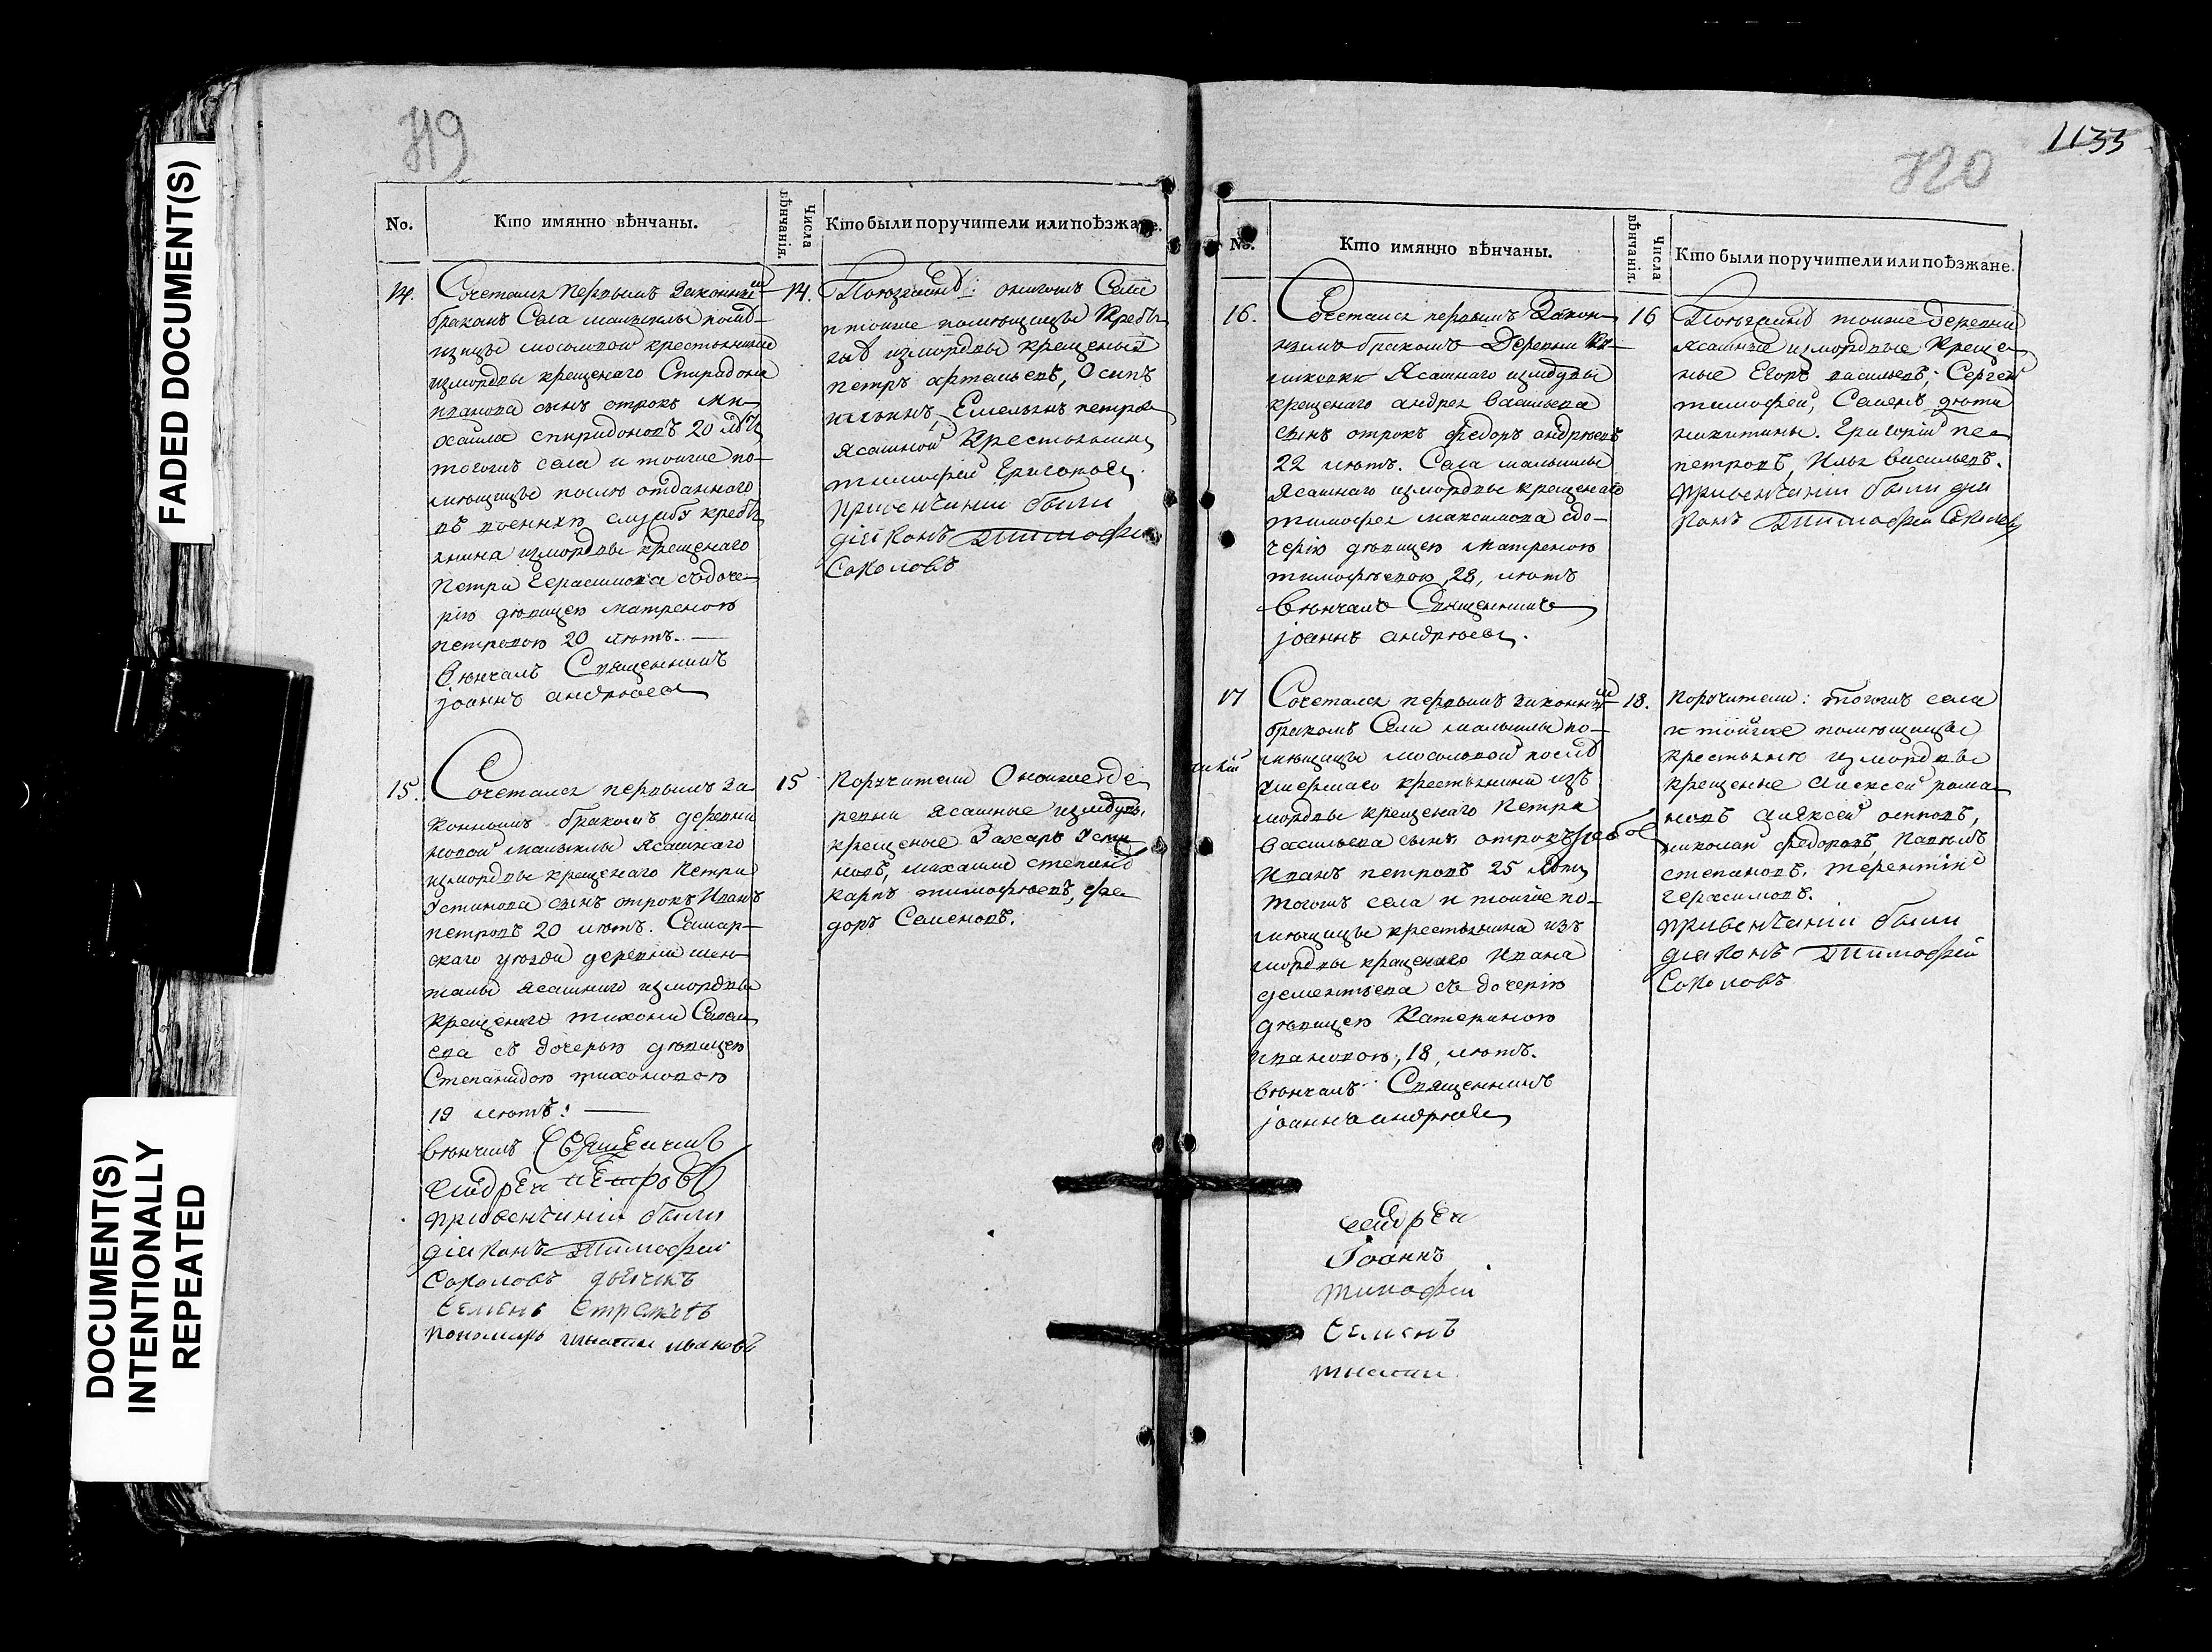 FADED DOCUMENT(S)
DOCUMENT(S)
INTENTIONALLY
REPEATED
No.
Кто имянно вѣнчаны.
Числа вѣнчанія.
Кто были поручители или поѣзжане.
14.
Сочетался первымъ законным
бракомъ Села малыклы помѣ–
щицы мосоловой крестьянина
измордвы крещенаго Спиридона
иванова сынъ отрокъ ми–
хаила спиридоновъ 20 лѣтъ
тогожъ села и тоиже по–
мѣщицы послѣ отданнаго
въ военную службу кресть
янина измордвы крещенаго
Петра Герасимова сдоче–
рію дѣвицею матреною
петровою 20 лѣтъ.
Вѣнчалъ Священникъ
іоаннъ андрѣевъ
14.
Поѣзжанѣ: онагожъ Села
и тоиже помѣщицы кресть
янѣ измордвы крещеныя
петръ артемьевъ, Осипъ
ильинъ, Емельянъ петровъ
ясашной крестьянинъ
тимофей Григорьевъ.
привенчании были
діяконъ Тимофеи
Соколовъ
15.
Сочетался первымъ за
коннымъ бракомъ деревни
новой малыклы ясашнаго
измордвы крещенаго Петра
Устинова сынъ отрокъ Иванъ
петровъ 20 лѣтъ. Самар–
скаго уѣзда деревни шен
талы ясашнаго измордвы
крещенаго тихона Савель
ева съ дочерью дѣвицею
Степанидою тихоновою
19 лѣтъ:
вѣнчалъ Священникъ
андреи петровъ
привенчании были
діяконъ Тимофеи
Соколовъ дьячекъ
Семенъ
пономарь игнатеи ивановъ
15
Поручители Оноиже де
ревни ясашные измордвы
крещеные Захаръ Усти
новъ, михаила степановъ
карпъ тимофѣевъ, фе
доръ Семеновъ.
1133
720
No.
Кто имянно вѣнчаны.
Числа вѣнчанія.
Кто были поручители или поѣзжане.
16.
Сочетался первымъ Закон–
нымъ бракомъ Деревни
Ясашнаго измордвы
крещенаго андрея васильева
сынъ отрокъ федоръ андрѣевъ
22 лѣтъ. Села малыклы
Ясашнаго измордвы крещенаго
тимофея максимова сдо–
черію дѣвицею матреною
тимофѣевою, 23, лѣтъ
Вѣнчалъ Священникъ
іоаннъ андрѣевъ.
16
Поѣзжанѣ тоиже деревни
ясашныя измордвые креще
ные Егоръ васильевъ, Сергей
тимофей, Семенъ дѣти
никитины. Григорій пе
петровъ, Илья васильевъ.
привенчании были дія
конъ Тимофеи Соколовъ
17
Сочетался первымъ законным
бракомъ Села малыклы по–
мѣщицы мосоловой послѣ
умершаго крестьянина изъ
мордвы крещенаго Петра
васильева сынъ отрокъ
Иванъ петровъ 25 лѣтъ
тогожъ села и тоиже по–
мѣщицы крестьянина изъ
мордвы крещенаго Ивана
дементьева съ дочерію
дѣвицею Катериною
ивановою, 18, лѣтъ.
вѣнчалъ Священникъ
іоаннъ андрѣевъ
18.
Поручители: тогожъ села
и тоиже помѣщицы
крестьянѣ измордвы
крещеные алексеи рома
новъ алексей осиповъ,
николаи федоровъ, павелъ
степановъ, терентій
герасимовъ.
привенчании были
діяконъ Тимофей
Соколовъ
андреи
Іоаннъ
тимофеи
Семенъ